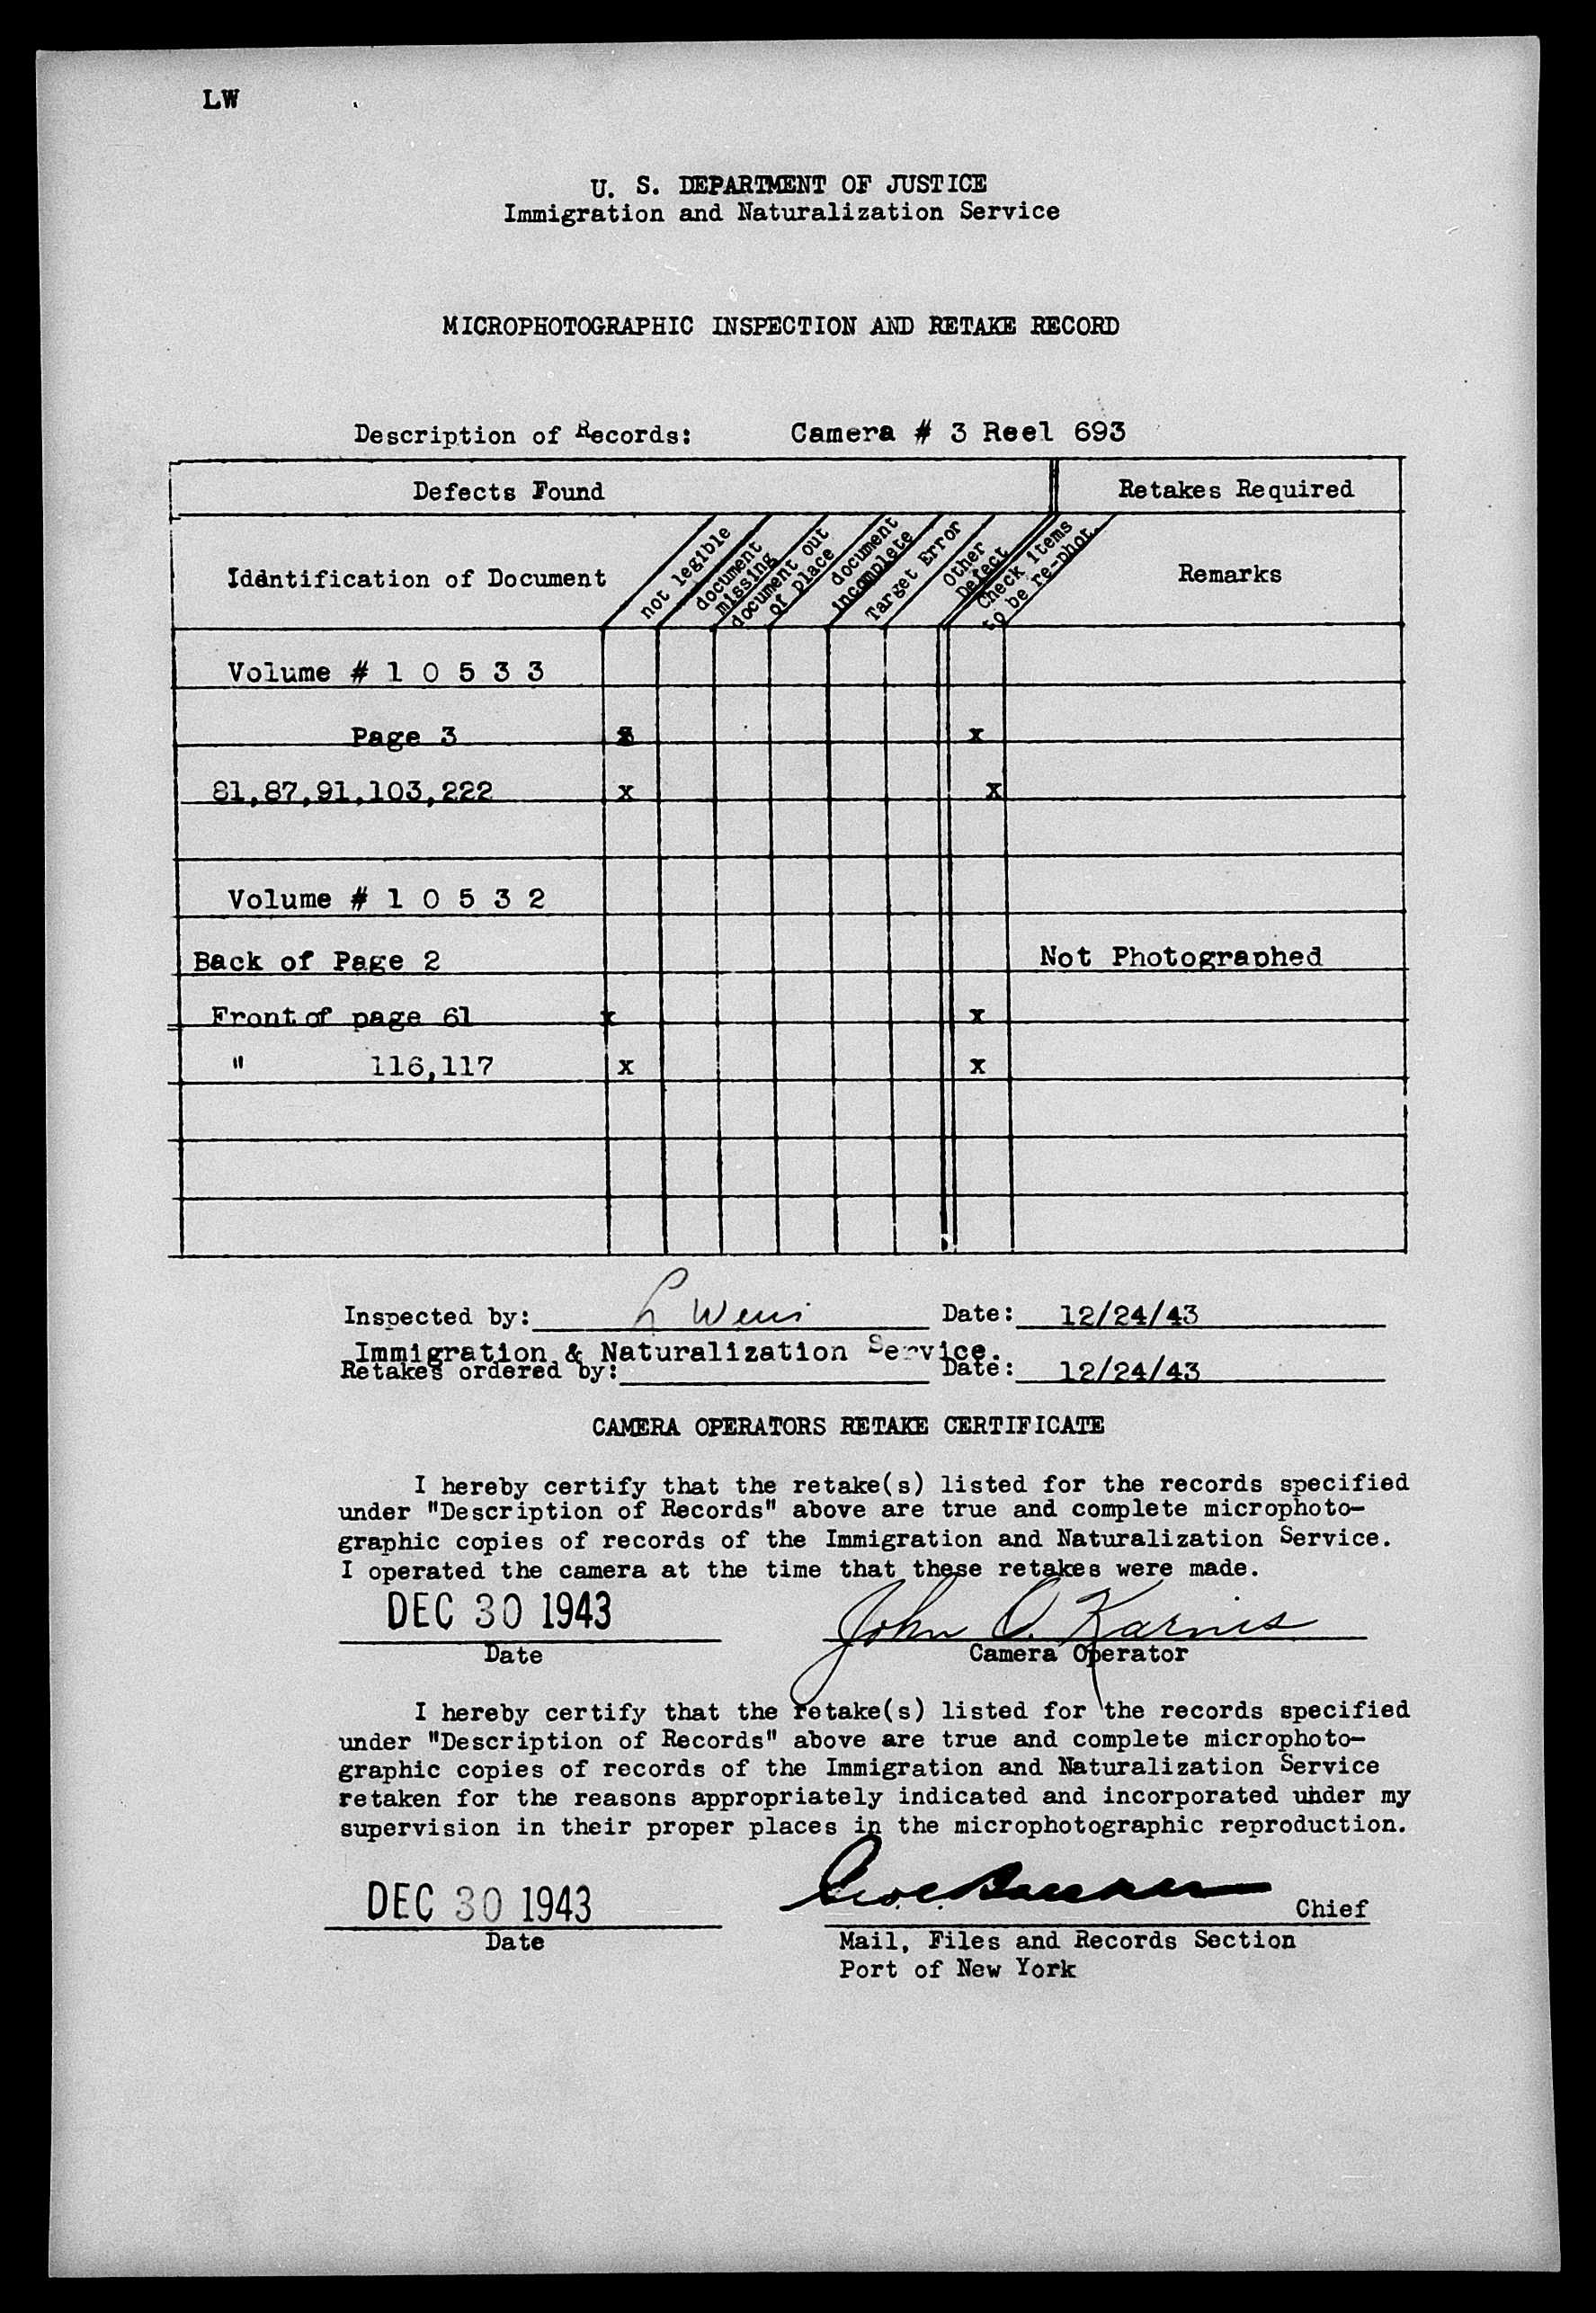 LW
U. S. DEPARTMENT OF JUSTICE
Immigration and Naturalization Service
MICROPHOTOGRAPHIC INSPECTION AND RETAKE RECORD
Description of Records: Camera # 3 Reel 693
Defects Found Retakes Required
Iddntification of Document not legible document missing document out of place document incomplete Target Error Other Defect Check items to be re-phot. Remarks
Volume # 1 0 5 3 3
Page 3 x
81,87,91,103,222 x x
Volume # 1 0 5 3 2
Back of Page 2 Not Photographed
Front of page 61 x x
" 116,117 x x
Inspected by: L Date: 12/24/43
Immigration & Naturalization Service.
Retakes ordered by: Date: 12/24/43
CAMERA OPERATORS RETAKE CERTIFICATE
I hereby certify that the retake(s) listed for the records specified
under "Description of Records" above are true and complete microphoto-
graphic copies of records of the Immigration and Naturalization Service.
I operated the camera at the time that these retakes were made.
DEC 30 1943 John O. Karnis
Date Camera Operator
I hereby certify that the retake(s) listed for the records specified
under "Description of Records" above are true and complete microphoto-
graphic copies of records of the Immigration and Naturalization Service
retaken for the reasons appropriately indicated and incorporated under my
supervision in their proper places in the microphotographic reproduction.
DEC 30 1943 Chief
Date Mail, Files and Records Section
Port of New York